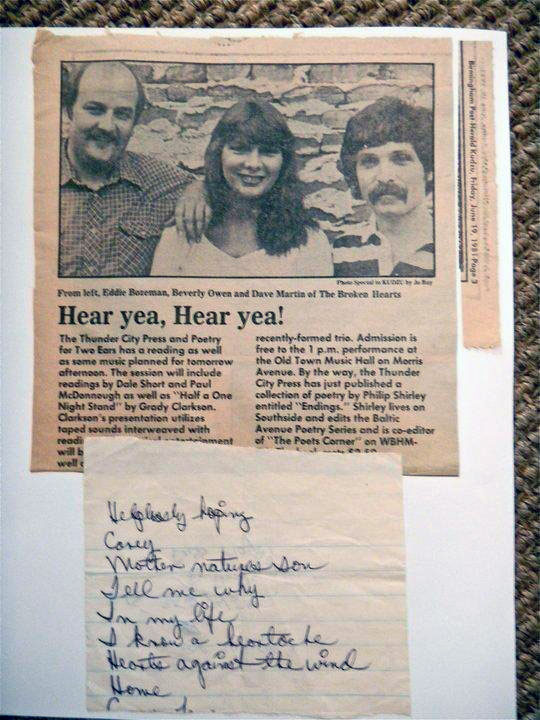 Birmingham Post-Herald Kudzu, Friday, June 19, 1981-Page 3
Photo Special to KUDZU by Jo Ray
From left, Eddie Bozeman, Beverly Owen and Dave Martin of The Broken Hearts
Hear yea, Hear yea!
The Thunder City Press and Poetry
for Two Ears has a reading as well
as some music planned for tomorrow
afternoon. The session will include
readings by Dale Short and Paul
McDonnough as well as "Half a One
Night Stand" by Grady Clarkson.
Clarkson's presentation utilizes
taped sounds interweaved with
entertainment
will
well
recently-formed trio. Admission is
free to the 1 p.m. performance at
the Old Town Music Hall on Morris
Avenue. By the way, the Thunder
City Press has just published a
collection of poetry by Philip Shirley
entitled "Endings." Shirley lives on
Southside and edits the Baltic
Avenue Poetry Series and is co-editor
of "The Poets Corner" on WBHM-
Helplessly hoping
Corey
Mother natures son
Tell me why
In my life
I know a heartache
Hearts against the wind
Home